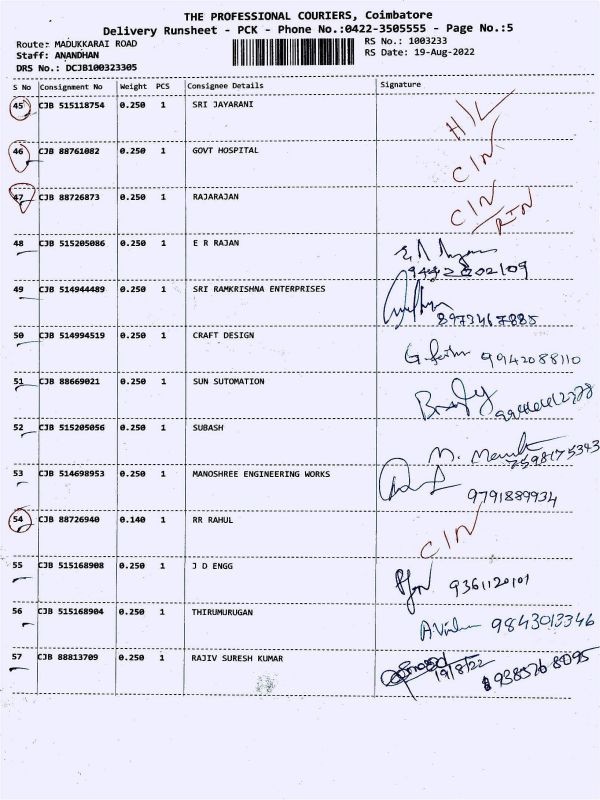 THE PROFESSIONAL COURIERS, Coimbatore
Delivery Runsheet - PCK - Phone No.:0422-3505555 - Page No.:5
Route: MADUKKARAI ROAD
Staff: ANANDHAN
DRS No.: DCJB100323305
RS No.: 1003233
RS Date: 19-Aug-2022
S No Consignment No Weight PCS Consignee Details Signature
45 CJB 515118754 0.250 1 SRI JAYARANI H/L
46 CJB 88761082 0.250 1 GOVT HOSPITAL C/N
47 CJB 88726873 0.250 1 RAJARAJAN C/N
RTN
48 CJB 515205086 0.250 1 E R RAJAN
49 CJB 514944489 0.250 1 SRI RAMKRISHNA ENTERPRISES
8973467885
50 CJB 514994519 0.250 1 CRAFT DESIGN 9942088110
51 CJB 88669021 0.250 1 SUN SUTOMATION
52 CJB 515205056 0.250 1 SUBASH
7598175343
53 CJB 514698953 0.250 1 MANOSHREE ENGINEERING WORKS
9791889934
54 CJB 88726940 0.140 1 RR RAHUL C/N
55 CJB 515168908 0.250 1 J D ENGG 9361120101
56 CJB 515168904 0.250 1 THIRUMURUGAN 9843013346
57 CJB 88813709 0.250 1 RAJIV SURESH KUMAR
19/8/22 9385768095